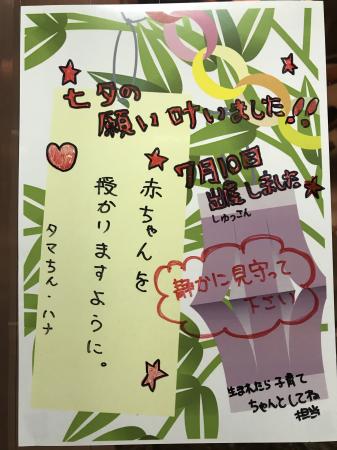 七夕の
願い叶いました!!
7月10日
出産しました
しゅっさん
赤ちゃんを
授かりますように。
タマちん・ハナ
静かに見守って
下さい
生まれたら子育て
ちゃんとしてね
担当